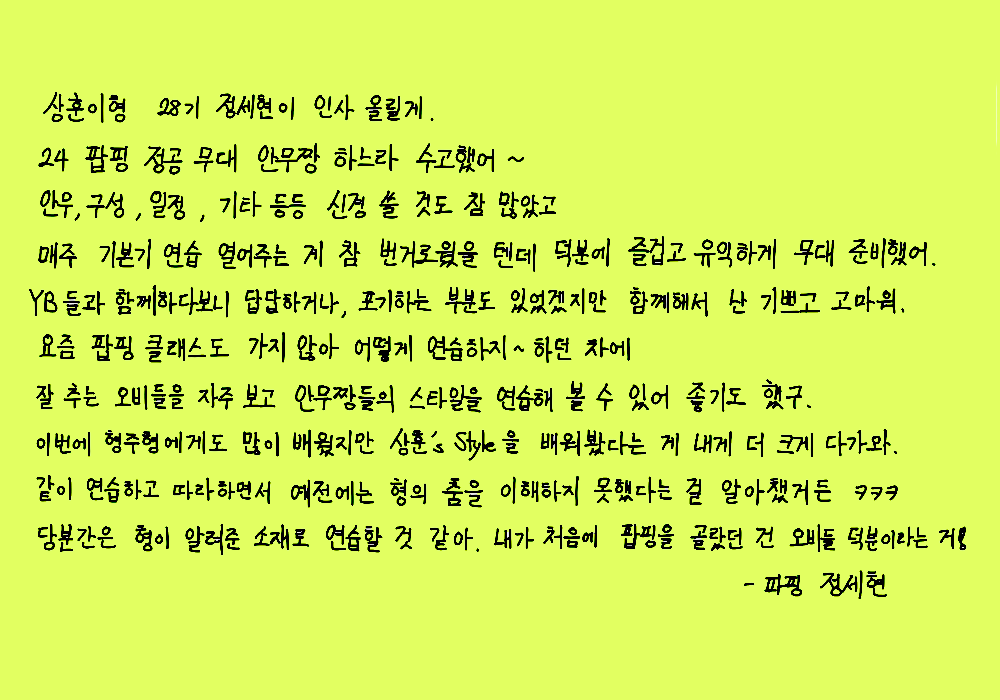 상훈이형 28기 정세현이 인사 올릴게.
24 팝핑 정공 무대 안무짱 하느라 수고했어 ~
안무, 구성, 일정, 기타 등등 신경 쓸 것도 참 많았고
매주 기본기 연습 열어주는 게 참 번거로웠을 텐데 덕분에 즐겁고 유익하게 무대 준비했어.
YB들과 함께하다보니 답답하거나, 포기하는 부분도 있었겠지만 함께해서 난 기쁘고 고마워.
요즘 팝핑 클래스도 가지 않아 어떻게 연습하지~ 하던 차에
잘 추는 오비들을 자주 보고 안무짱들의 스타일을 연습해 볼 수 있어 좋기도 했구.
이번에 형주형에게도 많이 배웠지만 상훈's Style을 배워봤다는 게 내게 더 크게 다가와.
같이 연습하고 따라하면서 예전에는 형의 춤을 이해하지 못했다는 걸 알아챘거든 ㅋㅋㅋ
당분간은 형이 알려준 소재로 연습할 것 같아. 내가 처음에 팝핑을 골랐던 건 오비들 덕분이라는 거!
- 파핑 정세현